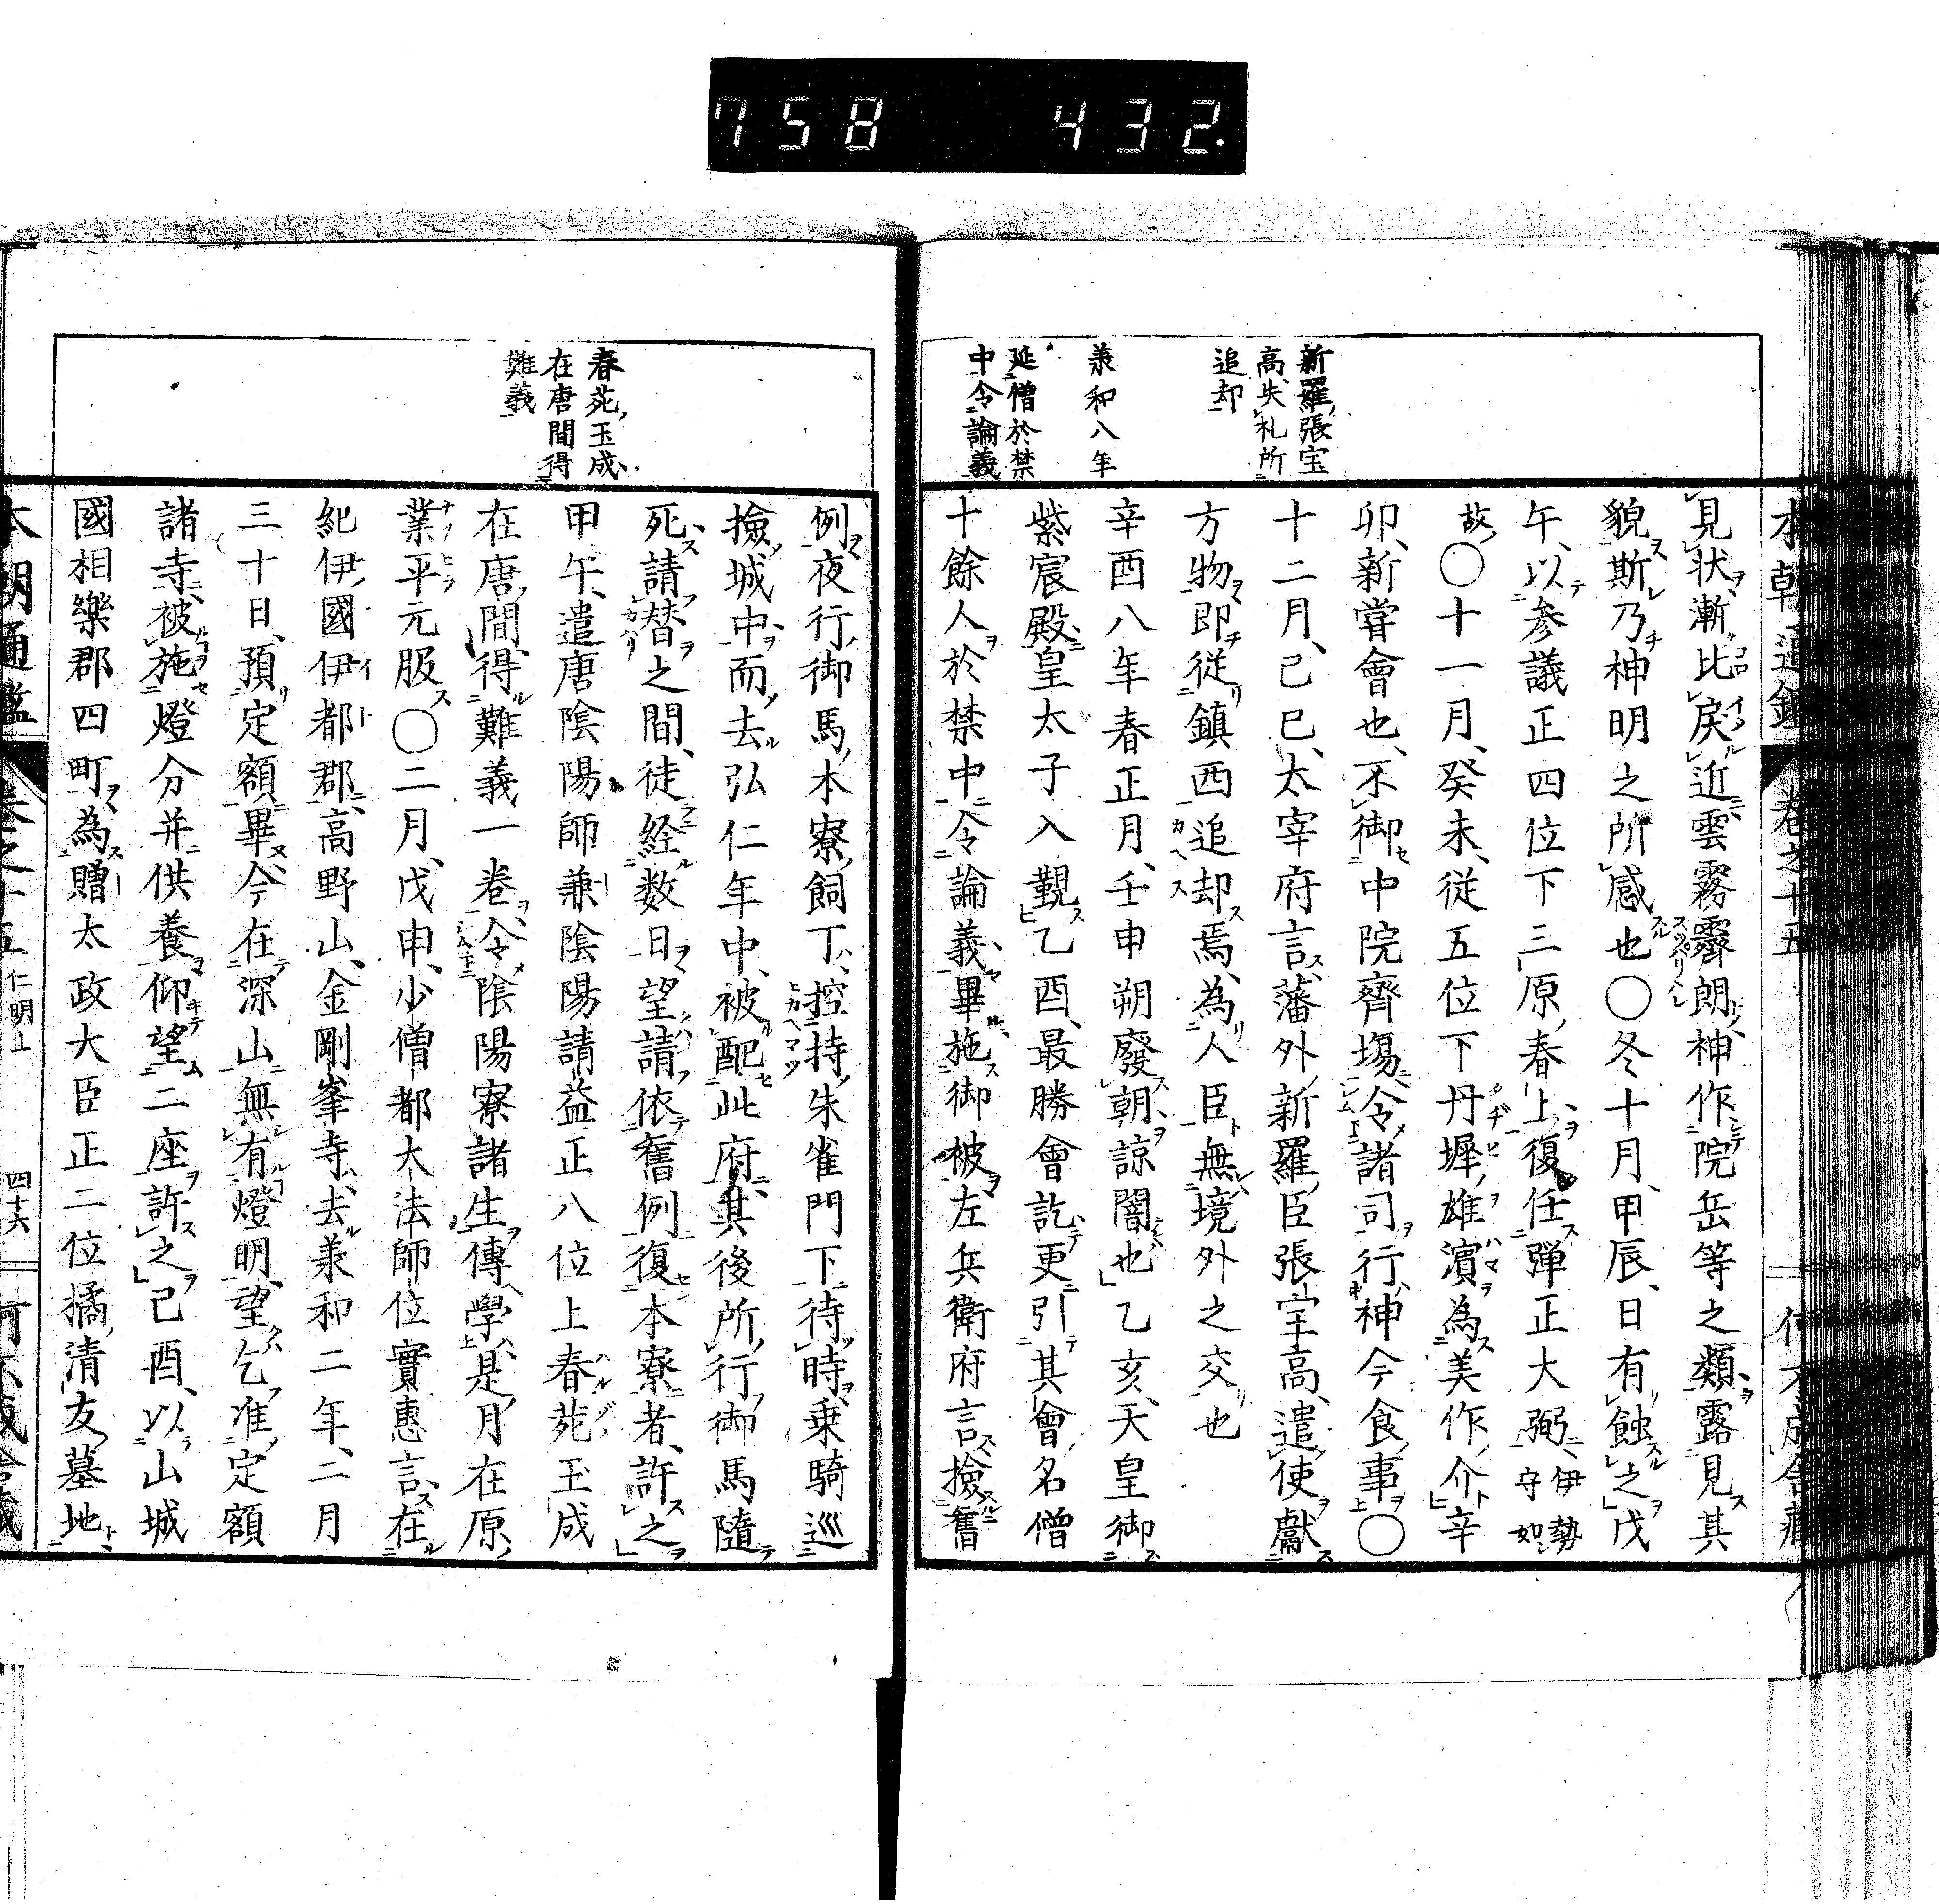 758 432.
本朝通鑑 卷之十五
新羅張宝
高失礼所
追却
兼和八年
延僧於禁
中令論義
見状漸比戻近雲霧霽朗神作院岳等之類露見其
貌斯乃神明之所感也〇冬十月甲辰日有蝕之戊
午以参議正四位下三原春上復任弾正大弼伊勢守如
故〇十一月癸未従五位下丹墀雄濵為美作介辛
卯新甞會也不御中院齊場令諸司行神今食事〇
十二月己巳太宰府言藩外新羅臣張宝高遣使獻
方物即従鎮西追却焉為人臣無境外之交也
辛酉八年春正月壬申朔廢朝諒闇也乙亥天皇御
紫宸殿皇太子入覲乙酉最勝會訖更引其會名僧
十餘人於禁中令論義畢施御被左兵衛府言撿舊
春苑玉成
在唐間得
難義
例夜行御馬本寮飼丁控持朱雀門下待時乗騎巡
撿城中而去弘仁年中被配此府其後所行御馬隨
死請替之間徒経数日望請依舊例復本寮者許之
甲午遣唐陰陽師兼陰陽請益正八位上春苑玉成
在唐間得難義一卷令陰陽寮諸生傳學是月在原
業平元服〇二月戊申少僧都大法師位實恵言在
紀伊國伊都郡高野山金剛峯寺去兼和二年二月
三十日預定額畢今在深山無有燈明望乞准定額
諸寺被施燈分并供養仰望二座許之己酉以山城
國相樂郡四町為贈太政大臣正二位橘清友墓地
本朝通鑑 卷之十五 仁明上 四十六